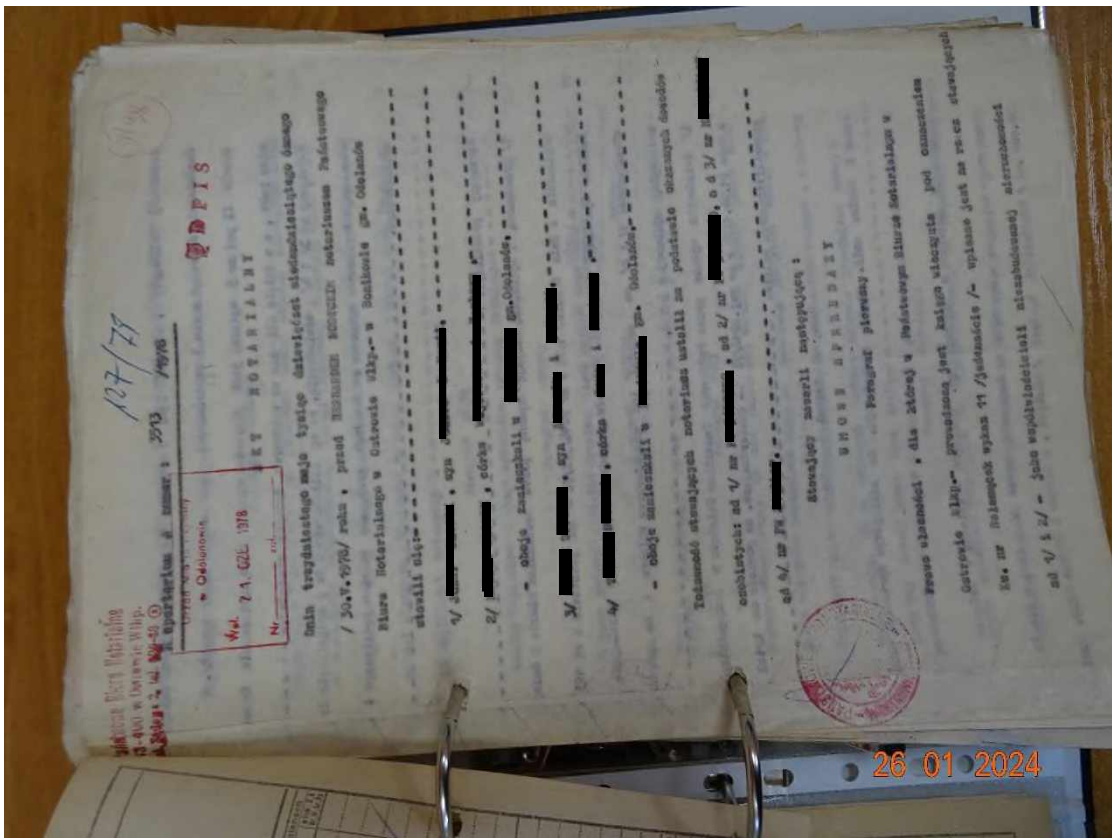 127/78
Państwowe Biuro Notarialne
63-400 w Ostrowie Wlkp.
Repertorium A numer : 3513 /1978
ODPIS
w Odolanowie
Wpł. 21. CZE. 1978
Nr
AKT NOTARIALNY
Dnia trzydziestego maja tysiąc dziewięćset siedemdziesiątego ósmego
/ 30.V.1978/ roku , przed notariuszem Państwowego
Biura Notarialnego w Ostrowie Wlkp.- w Bonikowie gm. Odolanów
stawili się:-
1/ , syn
2/ , córka
- oboje zamieszkali w gm.Odolanów,
3/ , syn i
4/ , córka i
- oboje zamieszkali w gm. Odolanów.-
Tożsamość stawających notariusz ustalił na podstawie okazanych dowodów
osobistych: ad 1/ nr , ad 2/ nr , ad 3/ nr
ad 4/ nr
Stawający zawarli następującą :
UMOWĘ SPRZEDAŻY
Paragraf pierwszy.
Prawo własności , dla której w Państwowym Biurze Notarialnym w
Ostrowie Wlkp.- prowadzona jest księga wieczysta pod oznaczeniem
Kw. nr wykaz 11 /jedenaście /- wpisane jest na rzecz stawających
ad 1/ i 2/ - jako współwłaścicieli niezabudowanej nieruchomości
26 01 2024